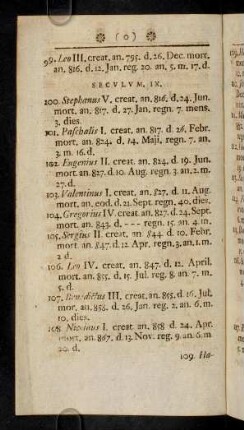 ( o )
99. Leo III. creat. an. 795. d. 26. Dec. mort.
an. 816. d. 12. Jan. reg. 20. an. 5. m. 17. d.
SECULUM. IX.
100. Stephanus V. creat. an. 816. d. 24. Jun.
mort. an. 817. d. 27. Jan. regn. 7. mens.
3. dies.
101. Paschalis I. creat. an. 817. d. 26. Febr.
mort. an. 824. d. 14. Maji, regn. 7. an.
3. m. 16. d.
102. Eugenius II. creat. an. 824. d. 19. Jun.
mort. an. 827. d. 10. Aug. regn. 3. an. 2. m.
27. d.
103. Valentinus I. creat. an. 827. d. 11. Aug.
mort. an. eod. d. 21. Sept. regn. 40. dier.
104. Gregorius IV. creat. an. 827. d. 24. Sept.
mort. an. 843. d. - - - regn. 15. an. 4. m.
105. Sergius II. creat. an. 844. d. 10. Febr.
mort. an. 847. d. 12. Apr. regn. 3. an. 1. m.
2. d.
106. Leo IV. creat. an. 847. d. 12. April.
mort. an. 855. d. 15. Jul. reg. 8. an. 7. m.
5. d.
107. Benedictus III. creat. an. 855. d. 16. Jul.
mor. an. 858. d. 26. Jan. reg. 2. an. 6. m.
10. dies.
108. Nicolaus I. creat. an. 858 d. 24. Apr.
mort. an. 867. d. 13. Nov. reg. 9. an. 6. m
20. d.
109. Ha-